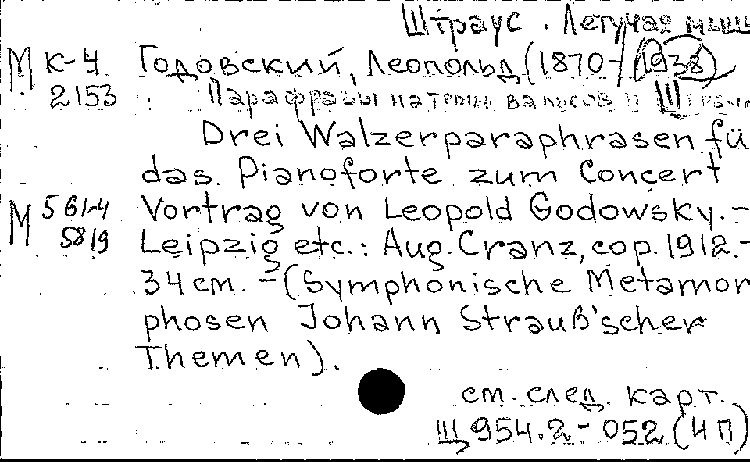 Штраус. Летучая мыш
М К-4 Годовский, Леопольд (1870-1938)
2153 Парафразы на темы вальсов И. Штра
Drei Walzerparaphrasen fü
das Pianoforte zum Concert
М 561-4 Vortrag von Leopold Godowsky.-
5819 Leipzig etc.: Aug. Cranz, cop. 1912.-
34 см. -(Symphonische Metamor
phosen Johann Strauß'scher
Themen).
см. след. карт.
Щ954.2-052 (4П)